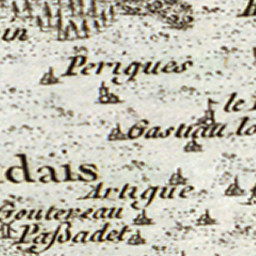 in
Perigues
le
Gastiau
dais
Artigue
Goutereau
Paßadet